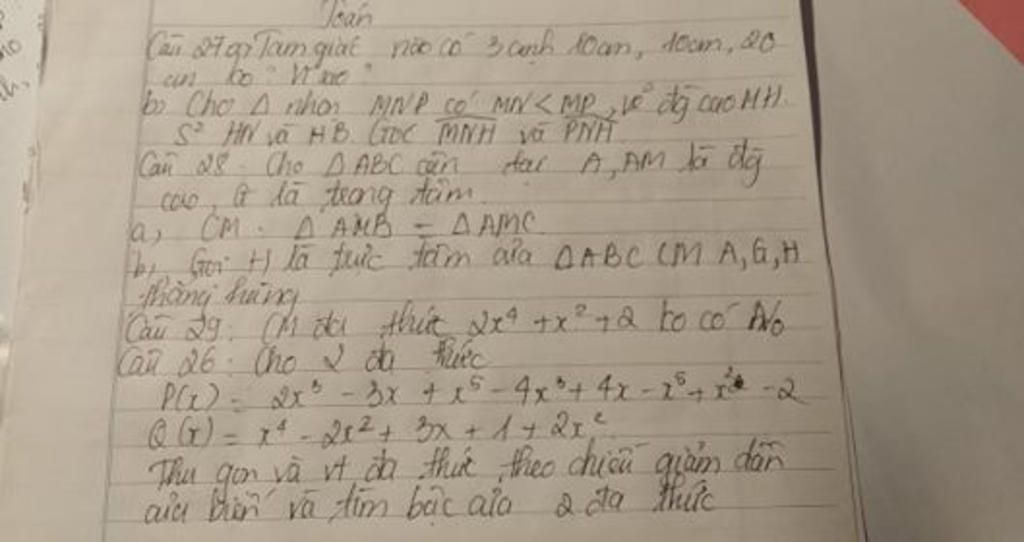 Toán
Câu 27 a, Tam giác nào có 3 cạnh 10cm, 10cm, 20
cm ko? Vì sao?
b, Cho Δ nhọn MNP có MN < MP, vẽ đg cao MH.
S² HN và HB. Góc MNH và PNH
Câu 28. Cho ΔABC cân tại A, AM là đg
cao, G là trọng tâm.
a, CM. Δ AMB = Δ AMC
b, Gọi H là trực tâm của ΔABC CM A, G, H
thẳng hàng
Câu 29: CM đa thức 2x⁴ + x² + 2 ko có No
Câu 26: Cho 2 đa thức
P(x) = 2x³ - 3x + x⁵ - 4x³ + 4x - x⁵ + x² - 2
Q(x) = x⁴ - 2x² + 3x + 1 + 2x²
Thu gọn và vt đa thức theo chiều giảm dần
của biến và tìm bậc của 2 đa thức